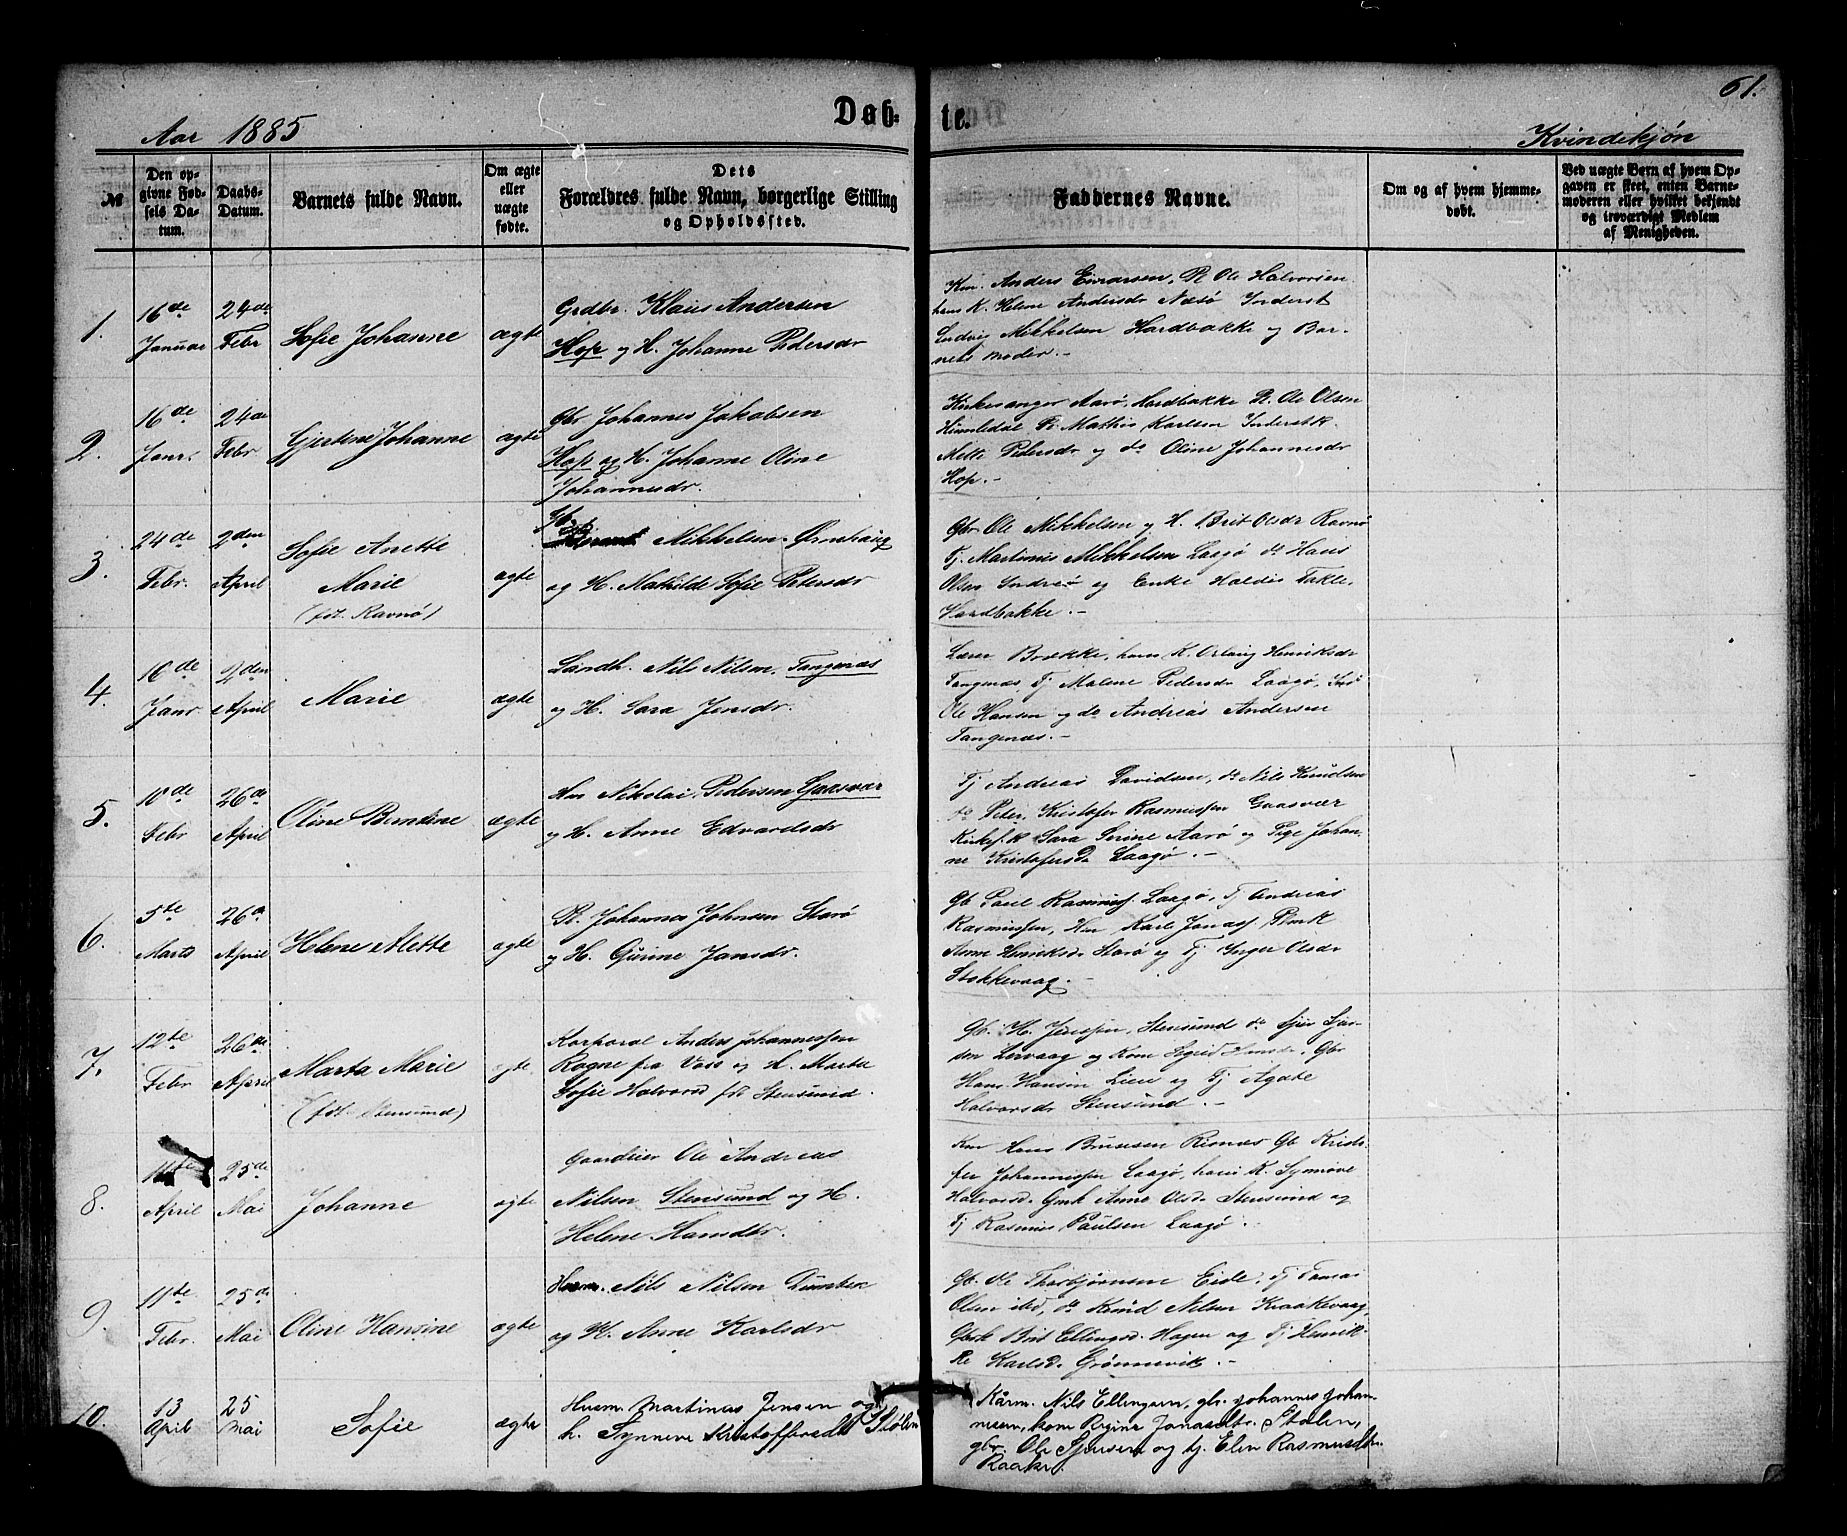 61.
Døb-
te.
Aar 1885
Kvindekjøn
№
Den op-
givne Fød-
sels Da-
tum.
Daabs-
Datum.
Barnets fulde Navn.
Om ægte
eller
uægte
fødte.
Dets
Forældres fulde Navn, borgerlige Stilling
og Opholdssted.
Faddernes Navne.
Om og af hvem hjemme-
døbt.
Ved uægte Børn af hvem Op-
gaven er skeet, enten Barne-
moderen eller hvilket bekjendt
og troværdigt Medlem
af Menigheden.
1.
16de
Januar
24de
Febr
Sofie Johanne
ægte
Grdbr. Klaus Andersen
Hop og H. Johanne Pedersdr
Anders Einarsen, P. Ole Halvorsen
hans K. Helene Andersdr Næsø Inderst
Ludvig Mikkelsen Hardbakke og Bar-
nets Moder.-
2.
16de
Janr.
24de
Febr
Gjertine Johanne
ægte
Gbr Johannes Jakobsen
Hop og H. Johanne Oline
Johannesdr.
Kirkesanger Aarø, Hardbakke P. Ole Olsen
Himledal P. Mathis Karlsen Inderstk.
Mette Pedersdr og do Oline Johannesdr
Hop.-
3.
24de
Febr.
2den
April
Sofie Anette
Marie
(fdt. Ravnø)
ægte
Gb.
Mikkelsen Ørnhaug
og H. Mathilde Sofie Petersdr
Gbr Ole Mikkelsen og H. Brit Olsdr Ravnø
Tj. Martinus Mikkelsen Laagø do Hans
Olsen Indreø og Enke Haldis Takle,
Hardbakke.-
4.
16de
Janr.
2den
April
Marie
ægte
Landh. Nils Nilsen, Tangenæs
og H. Sara Jensdr.
Lærer Brække, hans K. Henriksdr
Tangenæs, Tj Malene Pedersdr Laagø,
Ole Hansen og do Andreas Andersen
Tangenæs.-
5.
10de
Febr
26de
April
Oline Bendine
ægte
Hm Nikolai Pedersen Gaasvær
og H. Anne Edvardsdr
Tj Andreas Davidsen, do Nils Knudsen
do Peter Kristofer Rasmussen Gaasvær
Kirkes.k Sara Serine Aarø og Pige Johan-
ne Kristofersd Laagø.-
6.
5te
Marts
26d
April
Helene Alette
ægte
P. Johannes Johnsen Starø
og H. Gurine Jansdr.
Gb Paul Rasmuss. Laagø, Tj Andreas
Rasmussen, Hm Karl Jonass. Pmk
Anne Henriksd. Starø og Tj Inger Olsdr
Stokkevaag.
7.
12te
Febr
26de
April
Marta Marie
(fdt. Stensund)
ægte
Korporal Anders Johannessen
Rogne fra Voss og H. Marta
Sofie Halvorsd fdt Stensund.
Gb. H. Jenssen, Stensund do
Lervaag og Kone Sigrid Gbr
Hans Hansen Lien og Tj Agate
Halvorsdr Stensund.-
8.
11te
April
25de
Mai
Johanne
ægte
Gaardeier Ole Andreas
Nilsen Stensund og H.
Helene Hansdtr.
Km Hans Risnæs Gb Kristo-
fer Johannessen Laagø, hans K. Synnøve
Halvorsd. Gmk Anne Olsd. Stensund og
Tj Rasmus Paulsen Laagø.
9.
11te
Febr.
25de
Mai
Oline Hansine
ægte
Husm. Nils Nilsen
og H. Anne Karlsdr
Gb. Ole Thorbjørnsen Eide, Tj Tomas
Olsen ibd, do Knud Nilsen Kraakevaag,
Gbrk Brit Ellingsd. Hagen og Tj Henrik-
ke Karlsd. Grønnevik.-
10.
13
April
25
Mai
Sofie
ægte
Husm. Martinus Jensen og
h. Synneve Kristoffersdtr Stølen
Kårm. Nils Ellingsen, gbr. Johannes Johan-
nesen, kone Regine Jonasdtr. Stølen,
gbr. Ole Sjursen og tj. Elen Rasmusdtr.
Raaker.